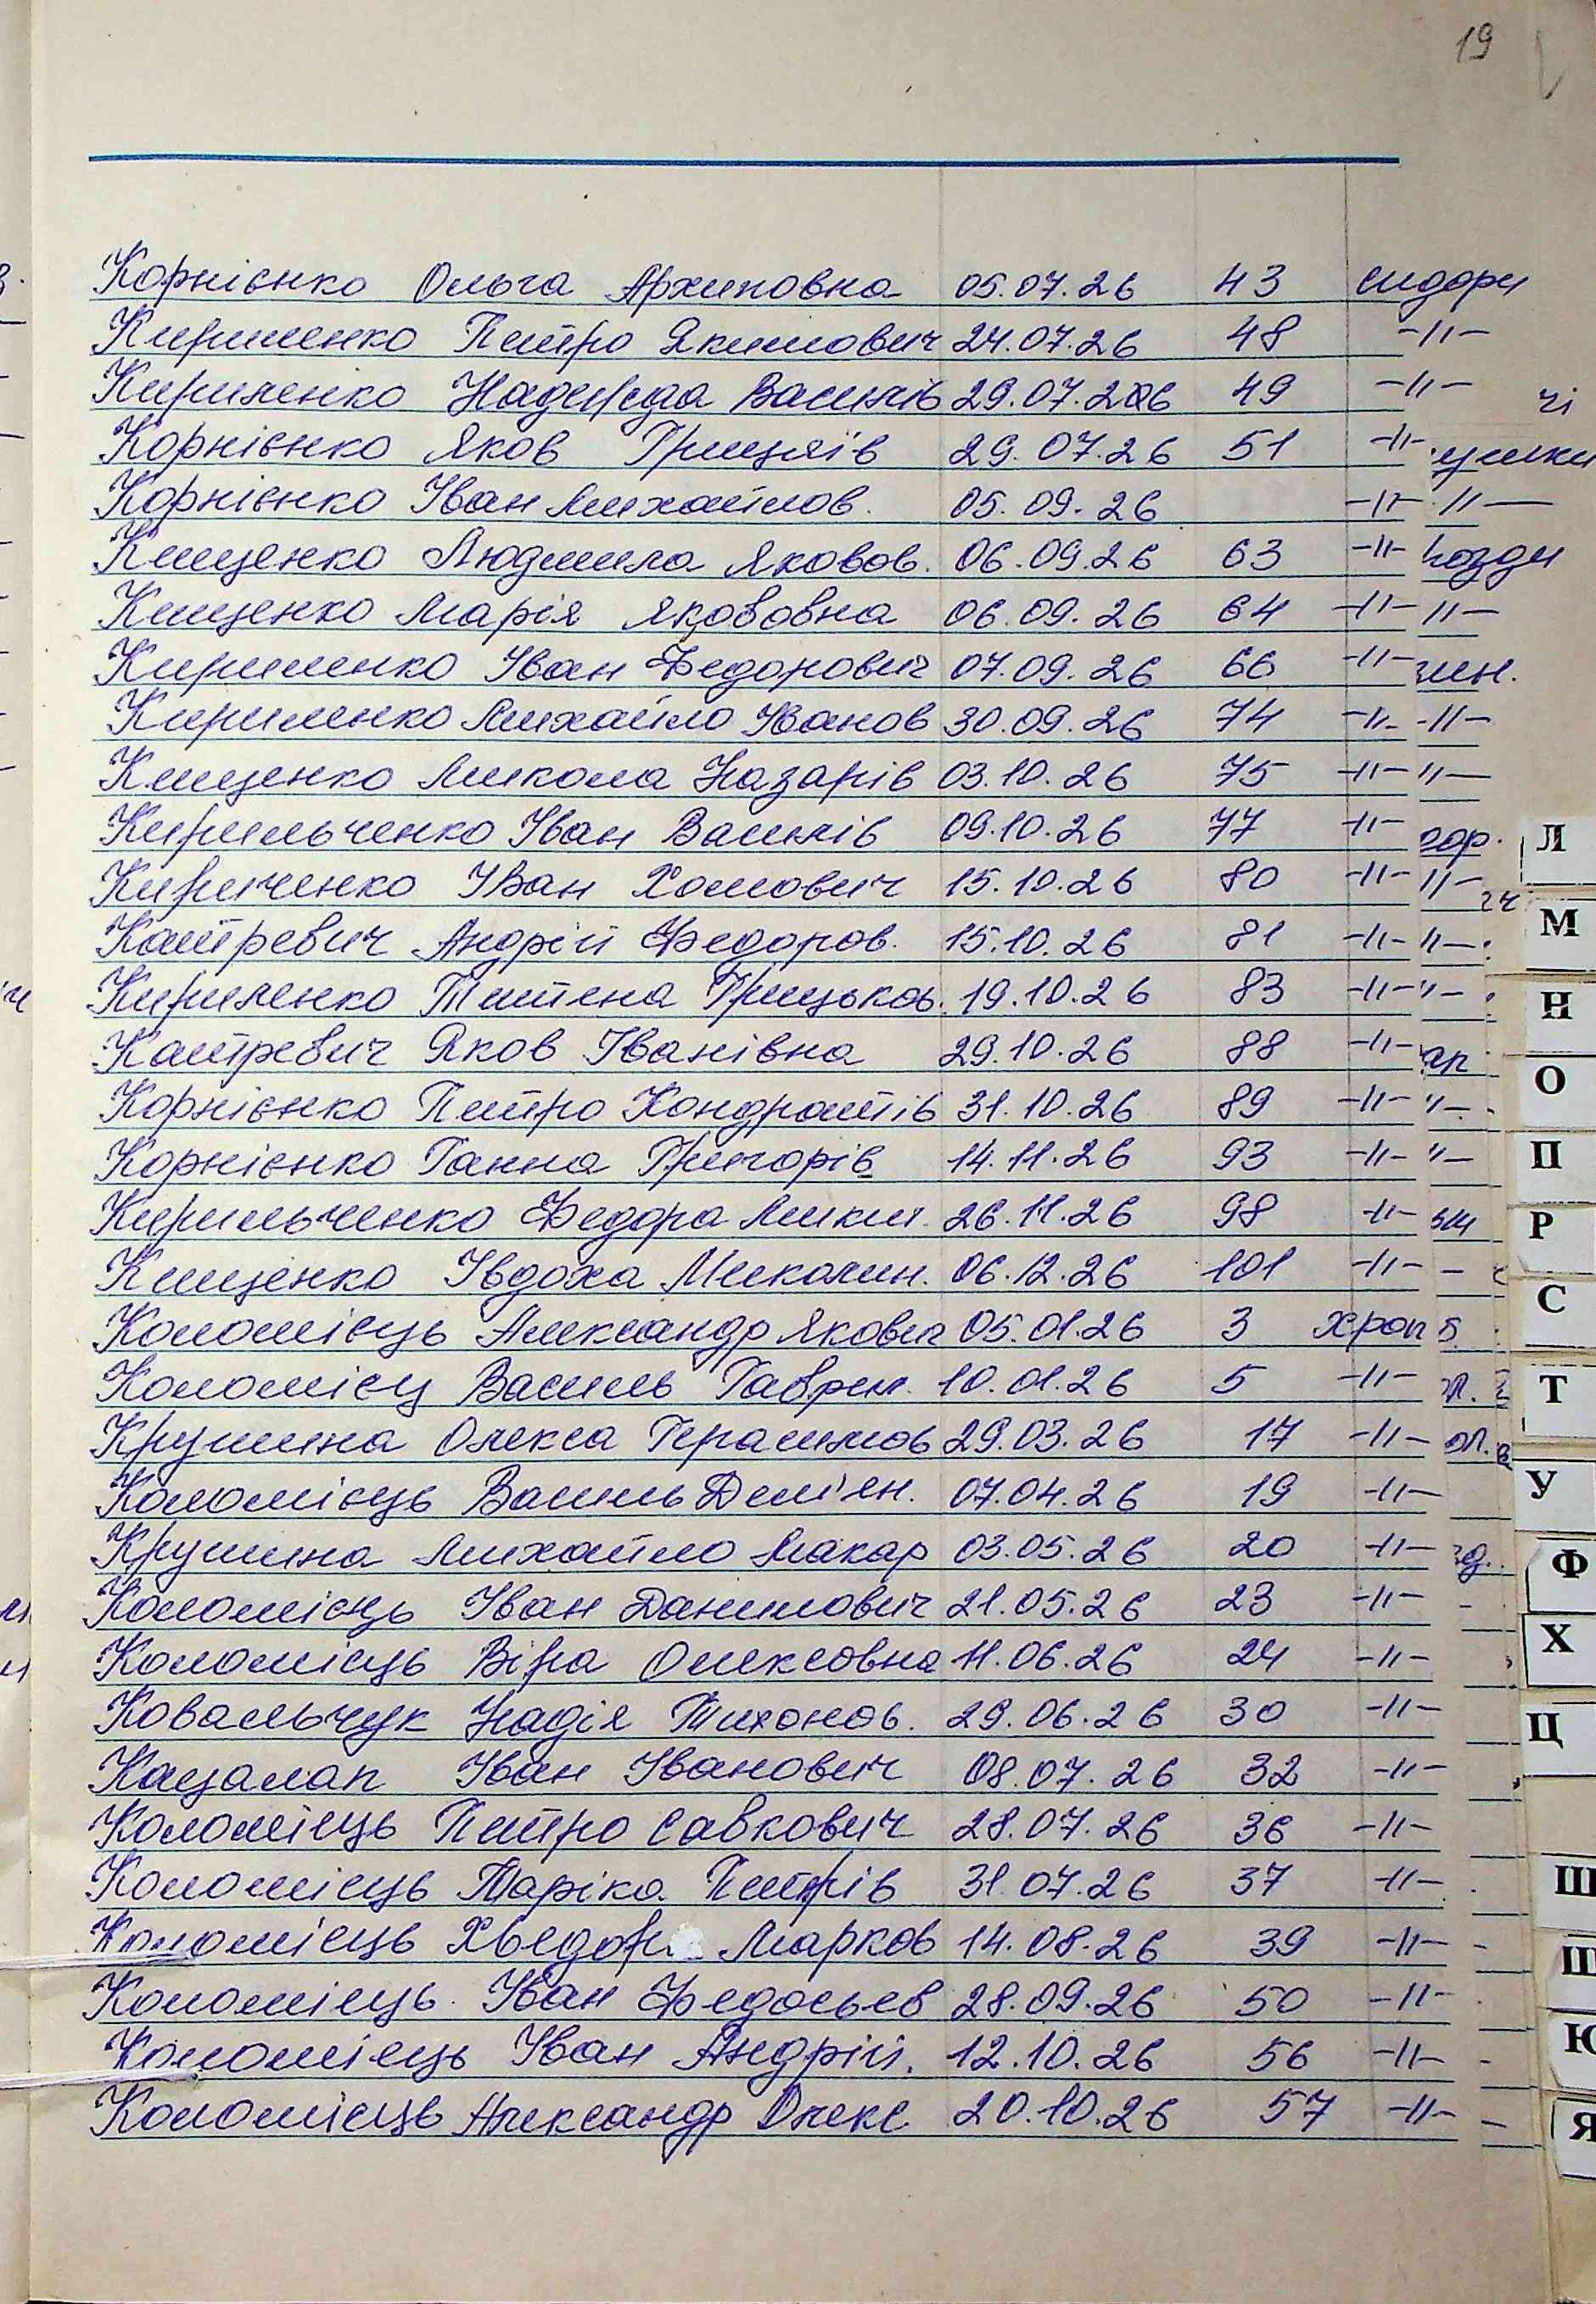 19
Корнієнко Ольга Архиповна 05.07.26 43 сидори
Кириленко Петро Якимович 24.07.26 48 -//-
Кириленко Надежда Василів 29.07.26 49 -//- чі
Корнієнко Яков Грицяїв 29.07.26 51 -//-
Корнієнко Іван Михайлов. 05.09.26 -//- -//-
Кищенко Людмила Яковов. 06.09.26 63 -//-
Кищенко Марія Якововна 06.09.26 64 -//- //-
Кириленко Іван Федорович 07.09.26 66 -//-
Кириленко Михайло Іванов 30.09.26 74 -//- -//-
Кищенко Микола Назарів 03.10.26 75 -//- //-
Кирильченко Іван Василів 09.10.26 77 -//- гор.
Кириченко Іван Хомович 15.10.26 80 -//- //-
Катревич Андрій Федоров. 15.10.26 81 -//- //-
Кириленко Тетяна Грицьков. 19.10.26 83 -//- //-
Катревич Яков Іванівна 29.10.26 88 -//- ар
Корнієнко Петро Кондратів 31.10.26 89 -//- //-
Корнієнко Ганна Григорів 14.11.26 93 -//- //-
Кирильченко Федора Микит. 26.11.26 98 -//-
Кищенко Івдоха Миколин. 06.12.26 101 -//- -
Коломієць Александр Якович 05.01.26 3 хроп
Коломієц Василь Гаврил. 10.01.26 5 -//-
Крушина Олекса Герасимов 29.03.26 17 -//-
Коломієць Василь Дем'ян. 07.04.26 19 -//-
Крушина Михайло Макар 03.05.26 20 -//-
Коломієць Іван Данилович 21.05.26 23 -//-
Коломієць Віра Олексовна 11.06.26 24 -//-
Ковальчук Надія Тихонов. 29.06.26 30 -//-
Кацалап Іван Іванович 08.07.26 32 -//-
Коломієць Петро Савкович 28.07.26 36 -//-
Коломієць Маріка Петрів 31.07.26 37 -//-
Коломієць Марков 14.08.26 39 -//-
Коломієць Іван Федосьев 28.09.26 50 -//-
Коломієць Іван Андрій. 12.10.26 56 -//-
Коломієць Александр Олекс 20.10.26 57 -//-
Л
М
Н
О
П
Р
С
Т
У
Ф
Х
Ц
Ш
Щ
Ю
Я